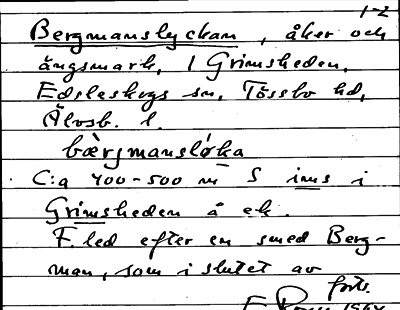 1-2
Bergmanslyckan, åker och
ängsmark, i Grimsheden,
Edsleskogs sn, Tössbo hd,
Älvsb. l.
bæ̀rjmansløka
C:a 400-500 m S inns i
Grimsheden å ek.
F. led efter en smed Berg-
man, som i slutet av
forts.